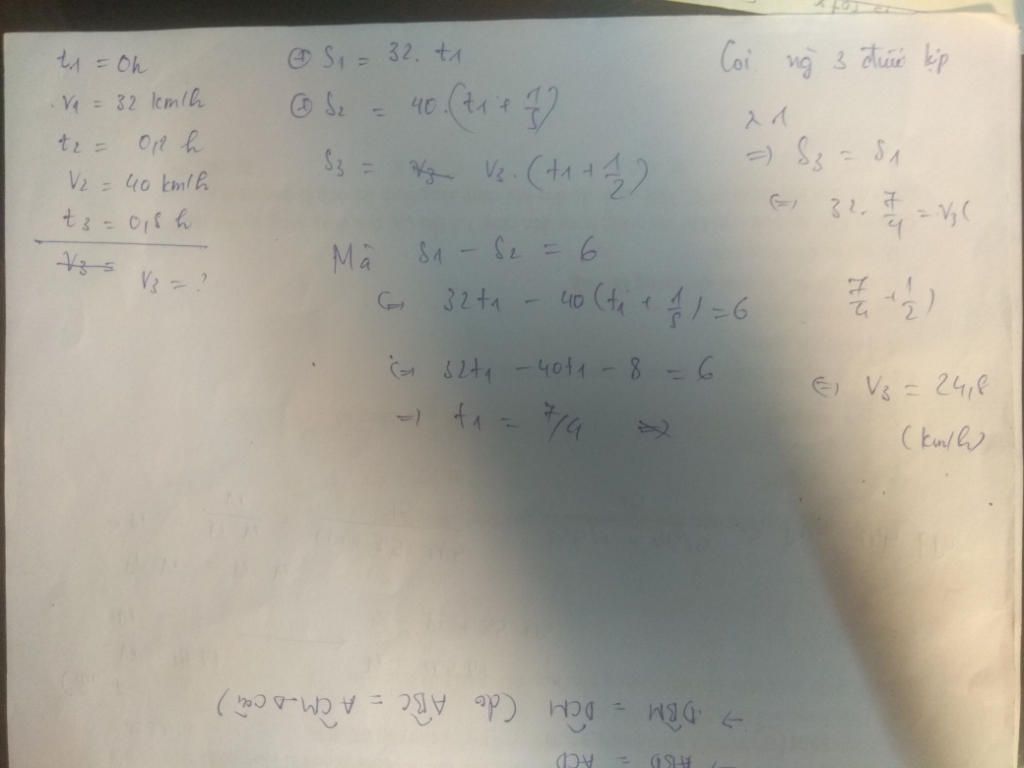 t1 = 0h
v1 = 32 km/h
t2 = 0,2 h
v2 = 40 km/h
t3 = 0,5 h
v3 = ?
⊕ S1 = 32. t1
⊕ S2 = 40.(t1 + 1/5)
S3 = v3. (t1 + 1/2)
Mà S1 - S2 = 6
<=> 32t1 - 40(t1 + 1/5) = 6
<=> 32t1 - 40t1 - 8 = 6
=> t1 = 7/4
Coi ng 3 đuổi kịp
x 1
=> S3 = S1
<=> 32. 7/4 = v3(
7/4 + 1/2)
<=> v3 = 24,8
(km/h)
→ DBM = DCM (do ABC = ACM - Δ cân)
→ ABD = ACD